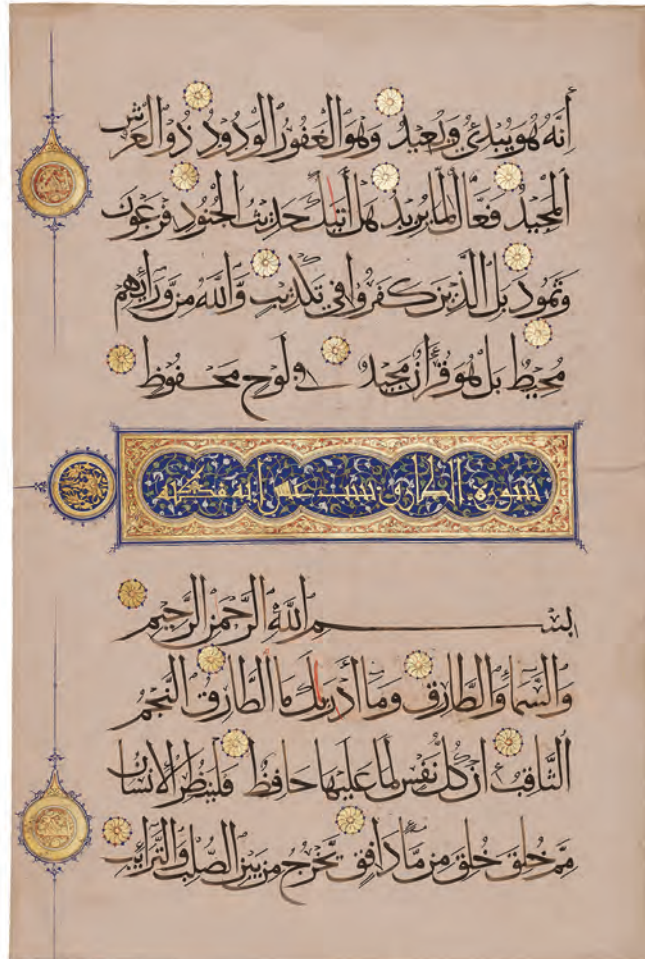 أَنَّهُ هُوَ يُبْدِئُ وَيُعِيدُ وَهُوَ الْغَفُورُ الْوَدُودُ ذُو الْعَرْشِ
الْمَجِيدُ فَعَّالٌ لِمَا يُرِيدُ هَلْ أَتَىٰكَ حَدِيثُ الْجُنُودِ فِرْعَوْنَ
وَثَمُودَ بَلِ الَّذِينَ كَفَرُوا فِي تَكْذِيبٍ وَّاللَّهُ مِنْ وَّرَائِهِمْ
مُحِيطٌ بَلْ هُوَ قُرْآنٌ مَّجِيدٌ فِي لَوْحٍ مَحْفُوظٍ
سورة الطارق ست عشر اية مكية
بِسْمِ اللَّهِ الرَّحْمَٰنِ الرَّحِيمِ
وَالسَّمَاءِ وَالطَّارِقِ وَمَا أَدْرَىٰكَ مَا الطَّارِقُ النَّجْمُ
الثَّاقِبُ إِنْ كُلُّ نَفْسٍ لَمَّا عَلَيْهَا حَافِظٌ فَلْيَنْظُرِ الْإِنْسَانُ
مِمَّ خُلِقَ خُلِقَ مِنْ مَّاءٍ دَافِقٍ يَّخْرُجُ مِنْ بَيْنِ الصُّلْبِ وَالتَّرَائِبِ